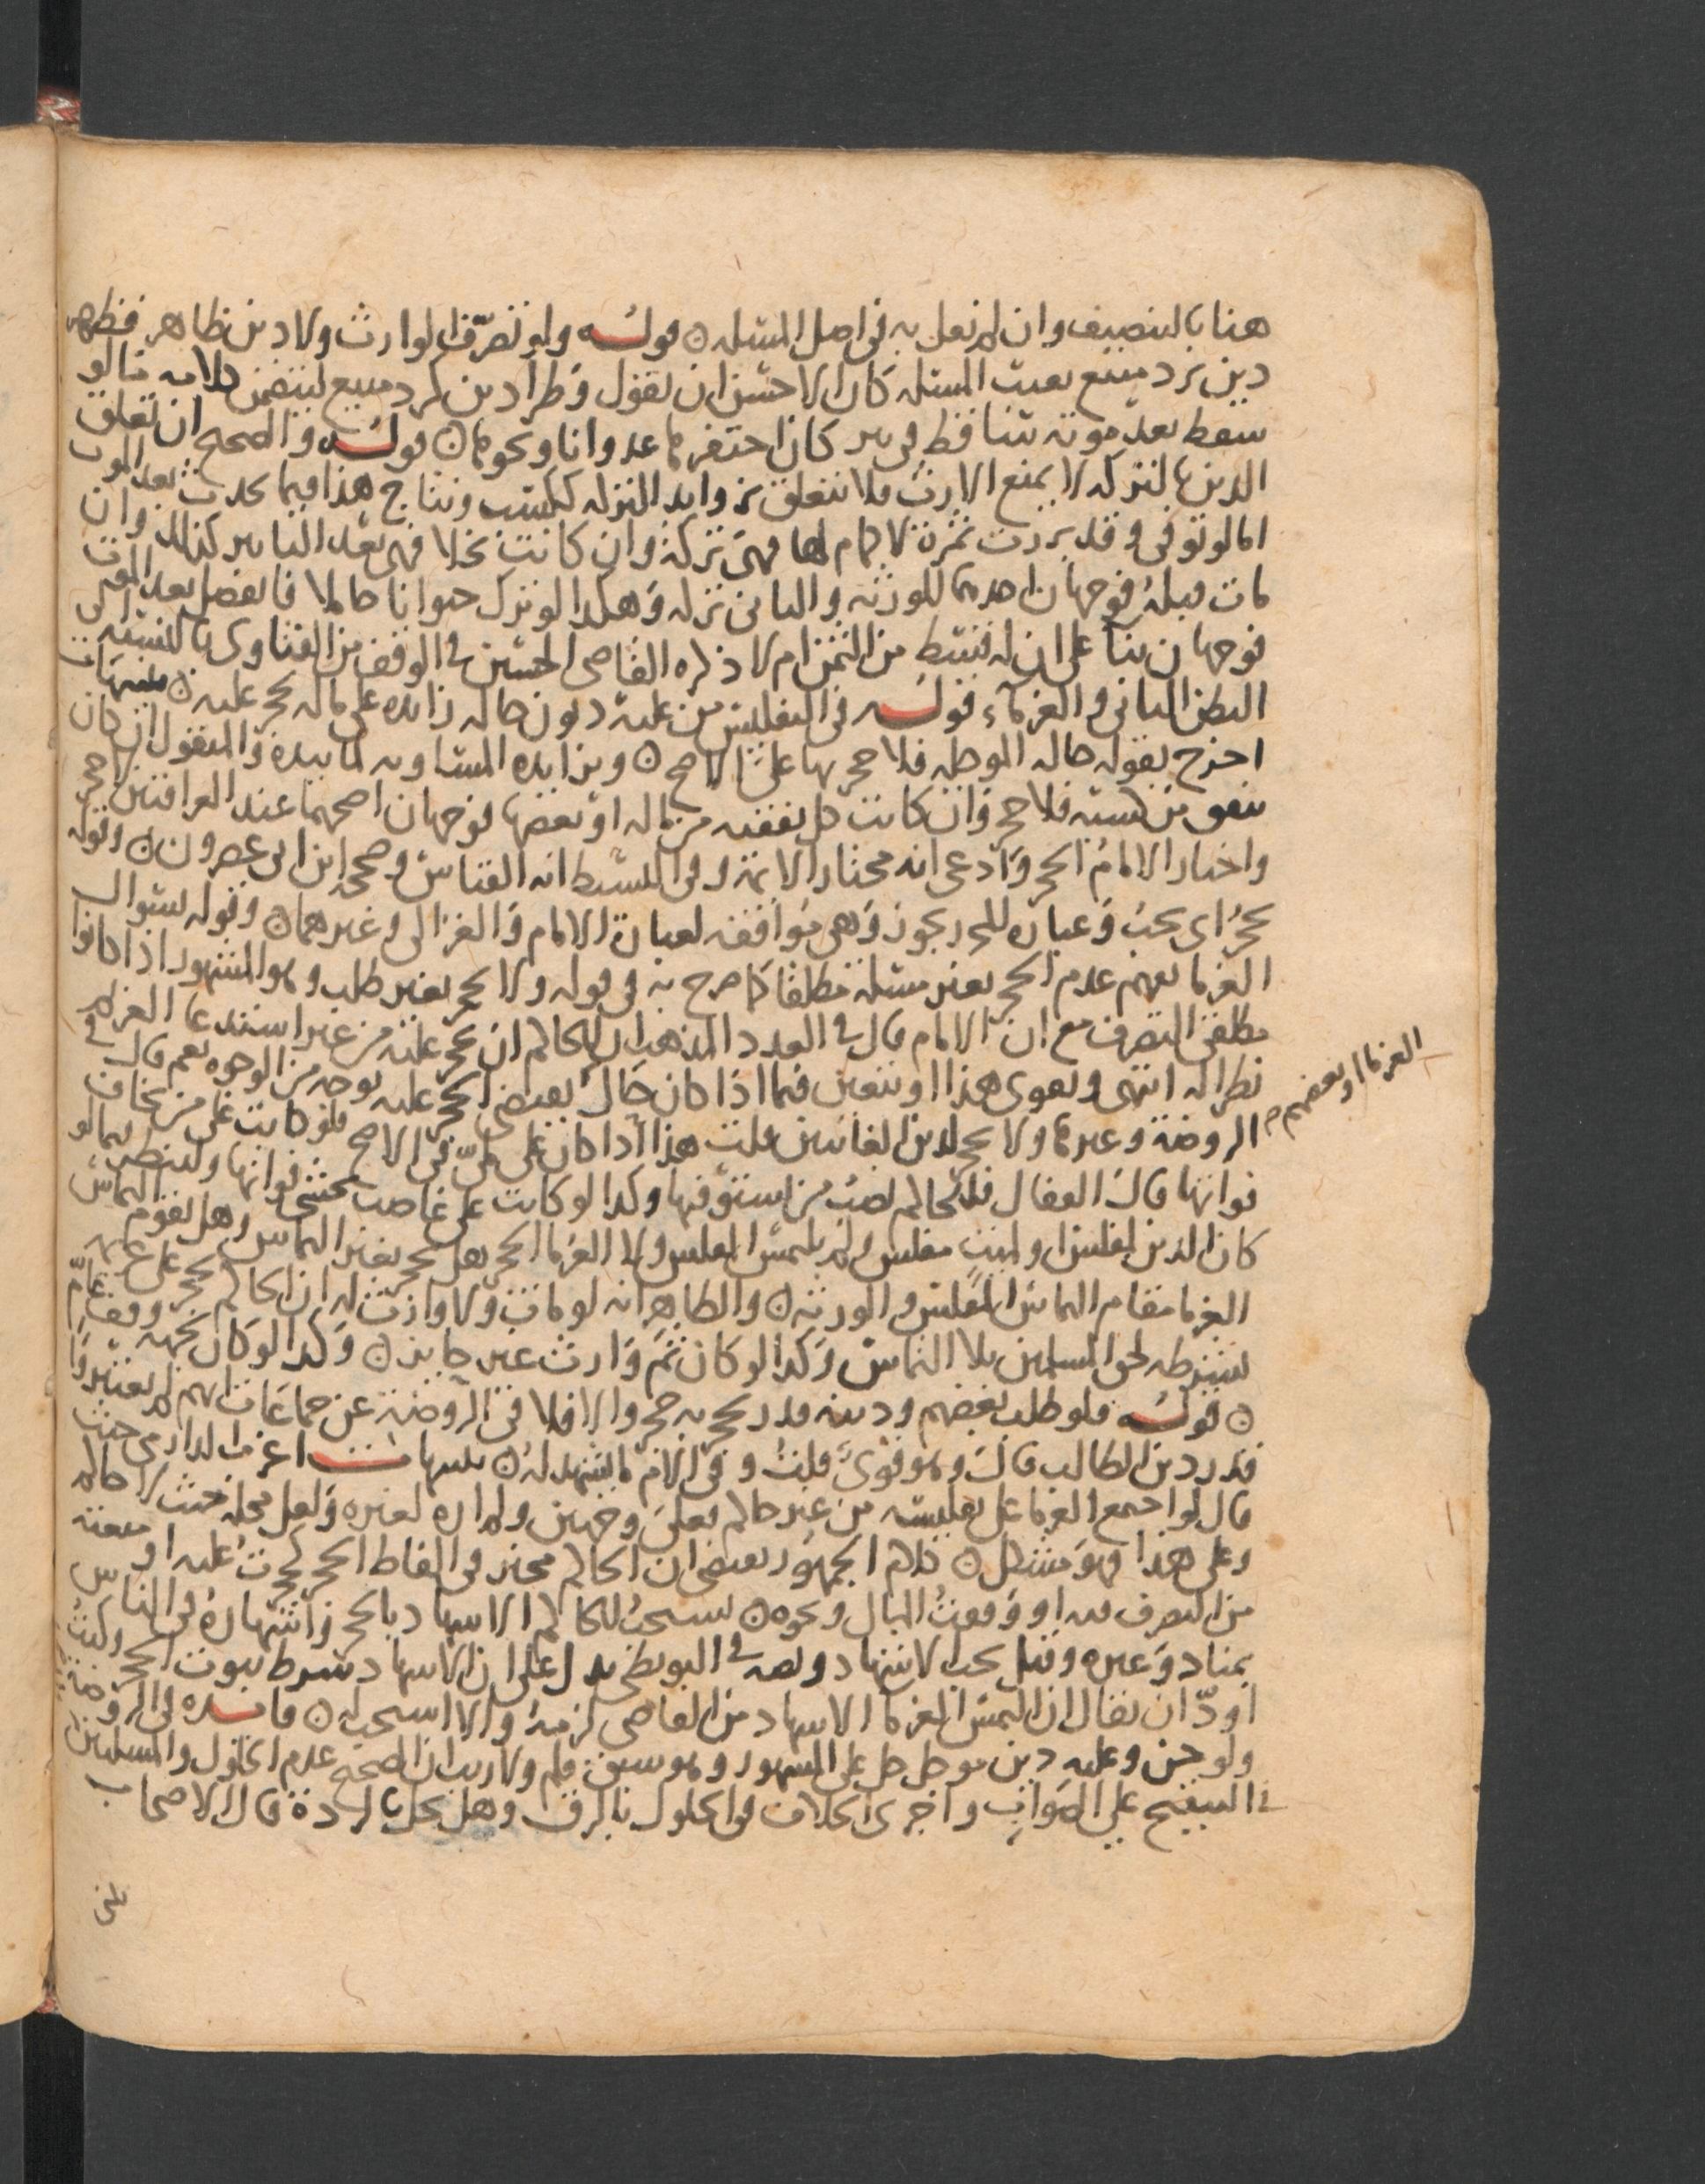 هنا بالتنصيف وان لم نقل به في اصل المسئلة ۞ قوله ولو تصرف الوارث ولا دين ظاهر فظهر
دين برد مبيع بعيب المسئلة كان الاحسن ان يقول فطرا دين كرد مبيع ليتضمن كلامه ما لو
سقط بعد موته ساقط في بير كان احتفرها عدوانا ونحوهما ۞ قوله والصحيح ان تعلق
الدين بالتركة لا يمنع الارث فلا تتعلق بزوايد التركة ككسب ونتاج هذا فيما يحدث بعد الموت
اما لو توفي وقد برزت ثمرة لا كمام لها فهي تركة وان كانت نخلا فهي بعد التابير كذلك وان
مات قبله فوجهان احدهما للورثة والثاني تركة وهكذا لو ترك حيوانا حاملا فانفصل بعد الموت
فوجهان بنا على ان له قسط من الثمن ام لا ذكره القاضي الحسين في الوقف من الفتاوى بالنسبة الى
البطن الثاني والغرماء قوله في التفليس من عليه ديون حالة زايدة على ماله يحجر عليه ۞ تنبيهات
احترز بقوله حالة الموجلة فلا حجر بها على الاصح ۞ وبزايدة المساوية لما بيده والمنقول ان كان
ينفق من كسبه فلا حجر وان كانت كل نفقته من ماله او بعضها فوجهان اصحهما عند العراقيين لا حجر
واختار الامام الحجر وادعى انه مختار الايمة وفي البسيط انه القياس وصححه ابن ابي عصرون ۞ وقوله
يحجر اي يجب وعبارة المحرر يجوز وهي موافقة لعبارة الامام والغزالي وغيرهما ۞ وقوله بسوال
الغرما يفهم عدم الحجر بغير مسئلة مطلقا كما صرح به في قوله ولا حجر بغير طلب وهو المشهور اذا كانوا
مطلقي التصرف مع ان الامام قال في العدد المذهب ان للحاكم ان يحجر عليه من غير استدعا الغرما
نظرا له انتهى ويقوى هذا او يتعين فيما اذا كان حال يقتضي الحجر عليه بوجه من الوجوه نعم قال في
الروضة وغيرها ولا يحجر لدين الغائبين قلت هذا اذا كان على ملي في الاصح فلو كانت على من يخاف
فواتها قال القفال فللحاكم نصب من يستوفيها وكذا لو كانت على غاصب يخشى فواتها ولينظر فيما لو
كان الدين لمفلس او لميت مفلس ولم يلتمس المفلس ولا الغرما الحجر هل يحجر بغير التماس وهل يقوم التماس
الغرما مقام التماس المفلس والورثة ۞ والظاهر انه لو مات ولا وارث له ان الحاكم يحجر على غريمه
بشرطه لحق المسلمين بلا التماس وكذا لو كان ثم وارث غير حايز ۞ وكذا لو كان لجهة وقف عام
۞ قوله فلو طلب بعضهم ودينه قدر يحجر به حجر والا فلا في الروضة عن جماعات انهم لم يعتبروا
قدر دين الطالب قال وهو قوي قلت وفي الام ما يشهد له ۞ تنبيهات اغرب الدارمي حيث
قال لو اجمع الغرما على تفليسه من غير حاكم فعلى وجهين ولم اره لغيره ولعل محله حيث لا حاكم
وعلى هذا فهو مشكل ۞ كلام الجمهور يقتضي ان الحاكم مخير في الفاظ الحجر كحجرت عليه او منعته
من التصرف فيه او وقفت المال ونحوه ۞ يستحب للحاكم الاشهاد بالحجر واشتهاره في الناس
بمناد وغيره وقيل يجب الاشهاد ونصه في البويطي يدل على ان الاشهاد شرط ثبوت الحجر وكنت
اود ان يقال ان التمس الغرما الاشهاد من القاضي لزمه والا استحب له ۞ فايدة في الروضة
ولو جن وعليه دين موجل حل على المشهور وهو سبق قلم ولا ريب ان الصحيح عدم الحلول والمسئلة
في التنقيح على الصواب واجرى الخلاف في الحلول بالرق وهل يحل بالردة قال الاصحاب
الغرما او بعضهم صح